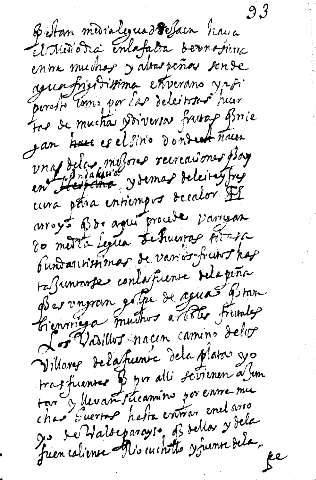 93
questan media legua de Jaen hacia
el Mediodia en la falda de
entre muchas y altas peñas son de
agua frigidissima en verano y
 como por las deleitosas huer
tas de muchas y diversas frutas que rie
gan es el sitio donde
una de las mejores recreaciones que ay
en Andalucia y de mas deleite y fres
cura para en tiempos de calor El
arroyo que de aqui procede
do media legua de huertas
bundantissimas de varios frutos has
ta juntarse con la fuente de la peña
que es un gran golpe de agua questan
bien riega muchos arboles frutales
Los Vadillos nacen camino de los
Villares de la fuente de la Plata y o
tras fuentes que por alli se vienen a Jun
tar y llevan su camino por entre mu
chas huertas hasta entrar en el arro
yo de Valdeparayso que dellos y de la
fuen caliente Rio cuchillo y fuente de la
pe